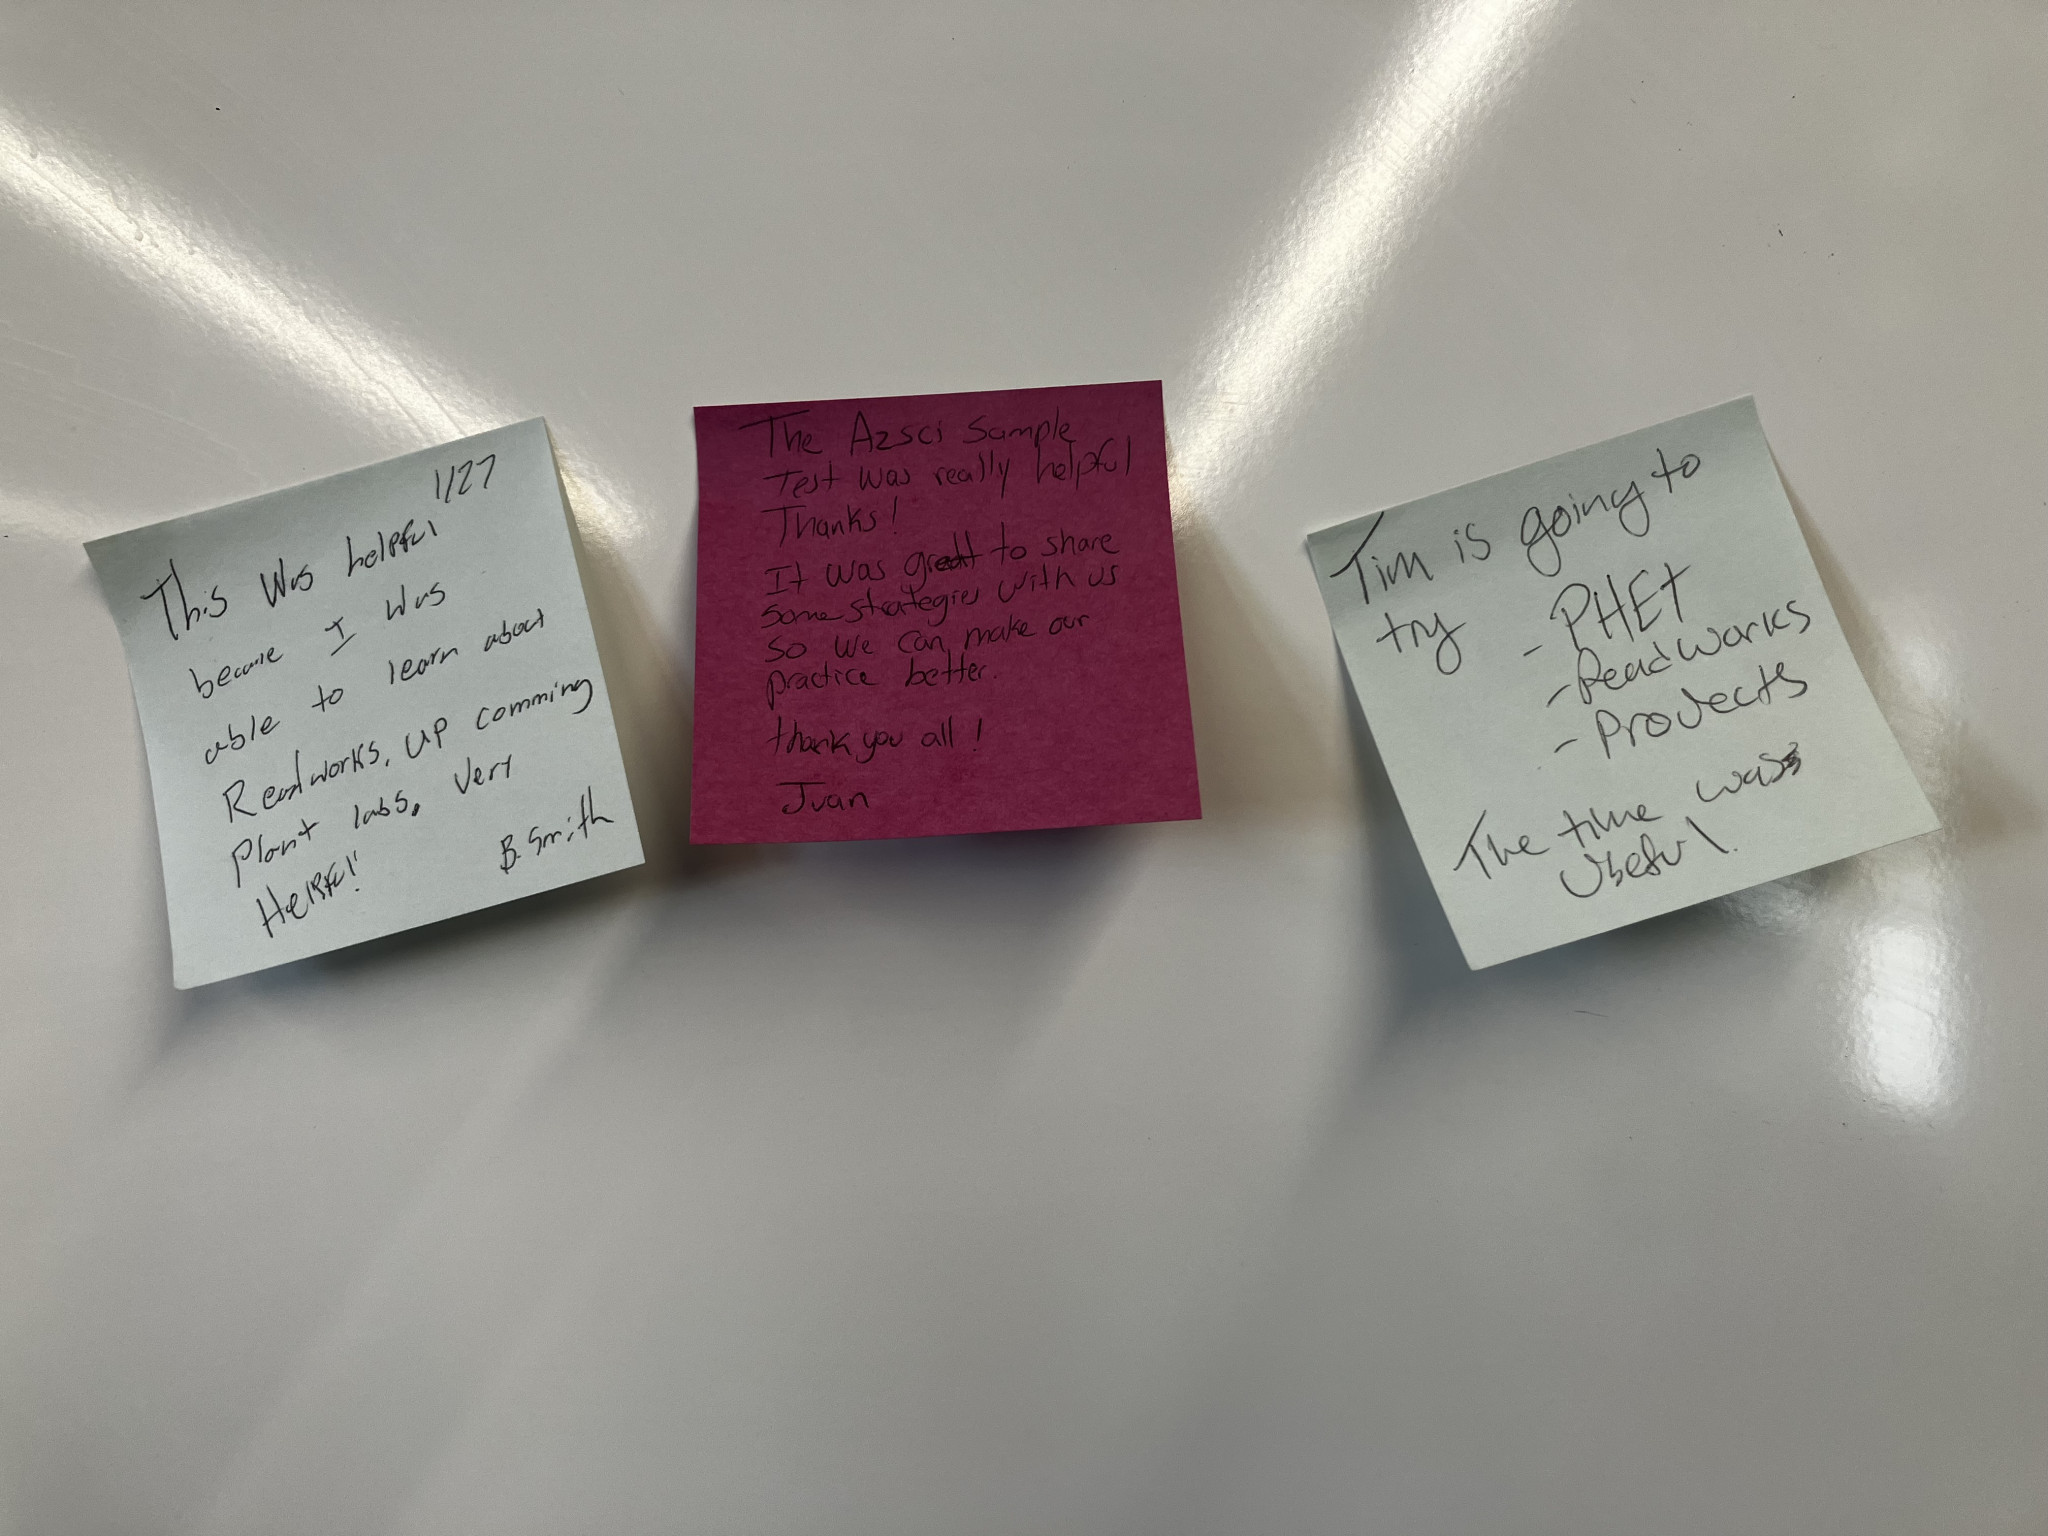 1/27
This Was helpful
because I Was
able to learn about
Readworks, up comming
Plant labs, Very
Helpful!
B. Smith
The Azsci Sample
Test was really helpful
Thanks!
It was great to share
some strategies with us
so we can make our
practice better.
thank you all!
Juan
Tim is going to
try - PHET
- Readworks
- Projects
The time was
useful.